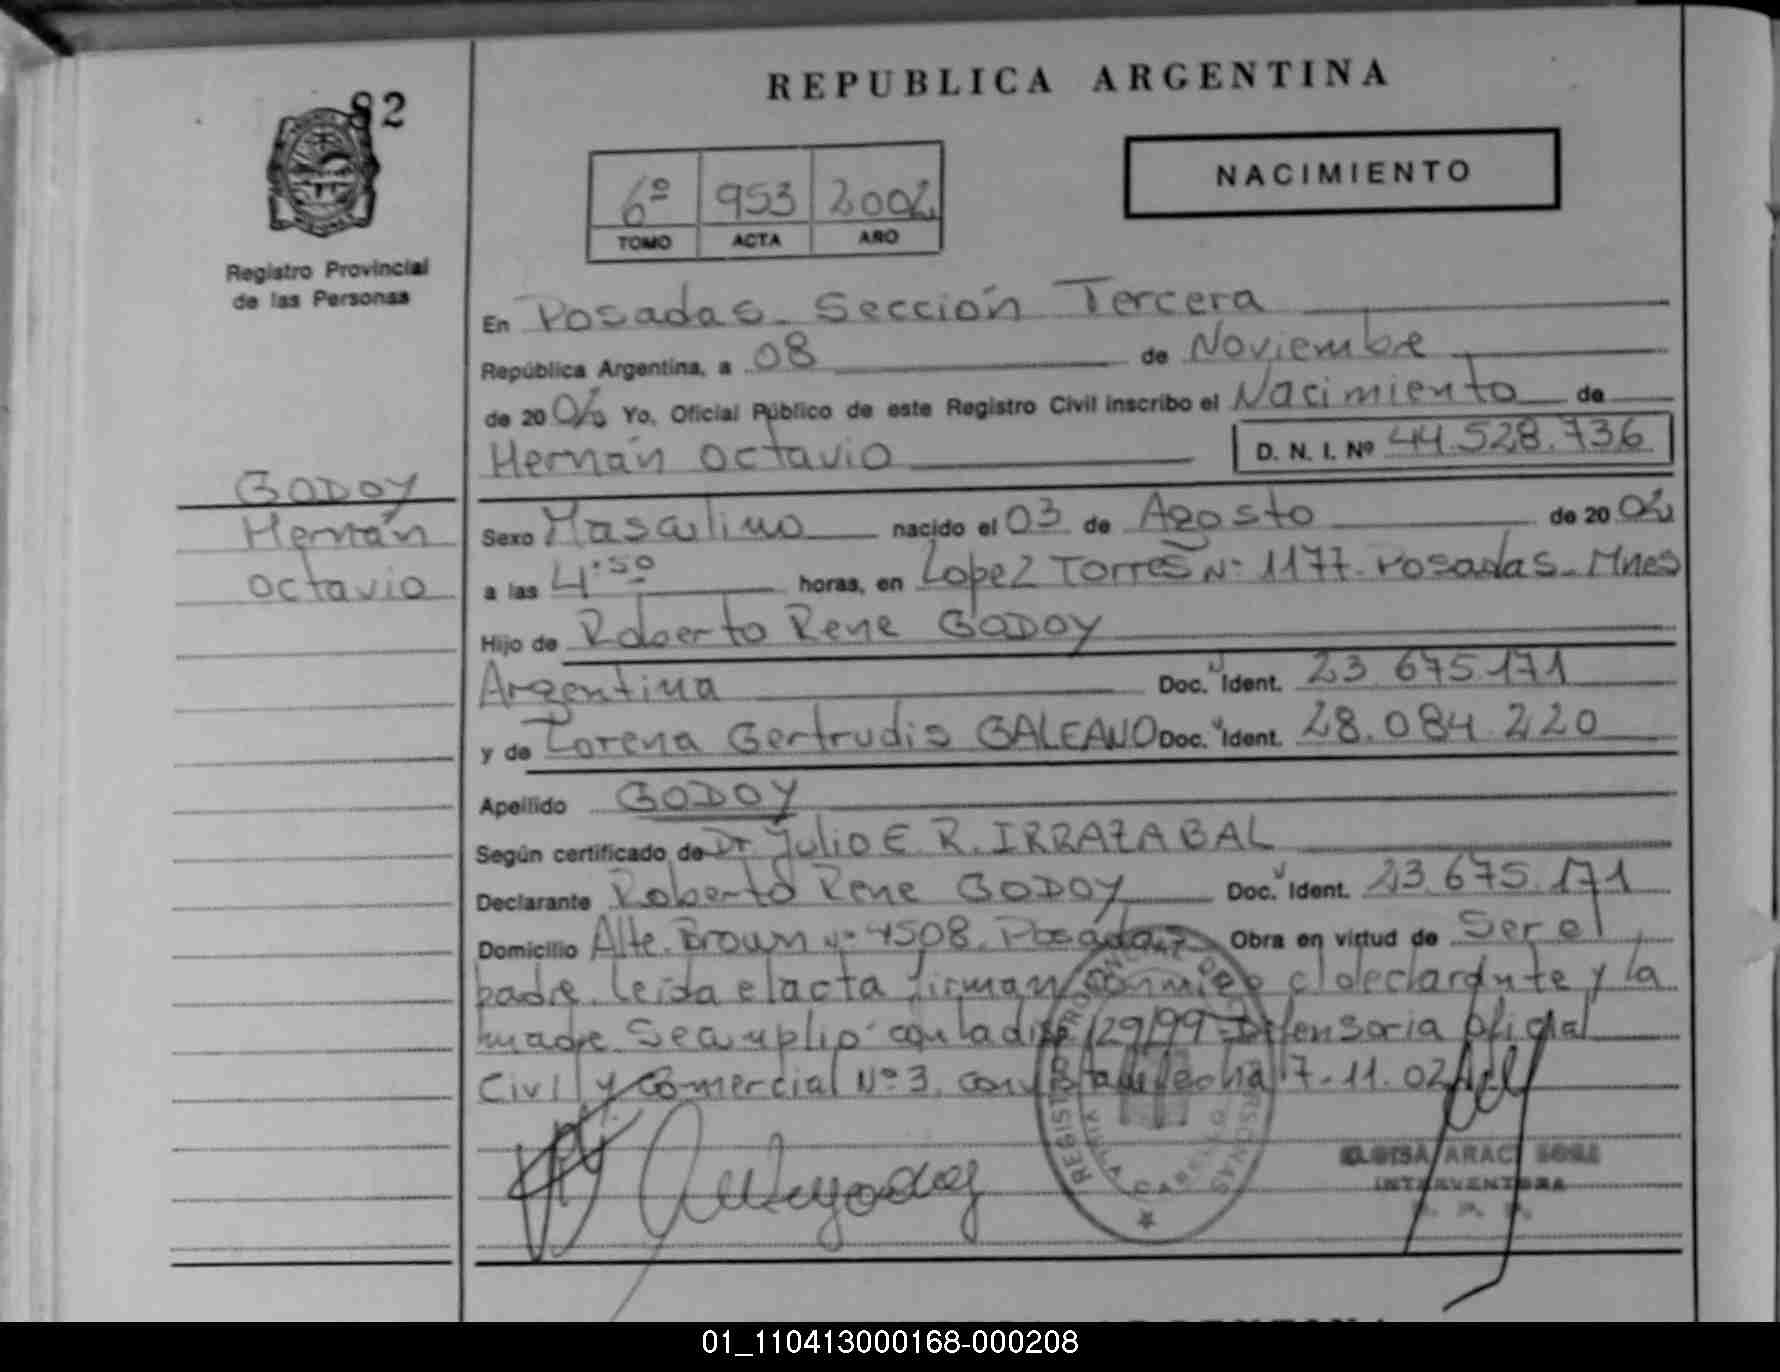 82
REPUBLICA ARGENTINA
NACIMIENTO
6º 953 2002
TOMO ACTA AÑO
Registro Provincial
de las Personas
En Posadas - Sección Tercera
República Argentina, a 08 de Noviembre
de 2002 Yo, Oficial Público de este Registro Civil inscribo el Nacimiento de
Hernán Octavio D. N. I. Nº 44.528.736
GODOY
Hernán
Octavio
Sexo Masculino nacido el 03 de Agosto de 2002
a las 4:50 horas, en Lopez Torres Nº 1177 - Posadas - Mnes
Hijo de Roberto Rene GODOY
Argentina Doc. Ident. 23.675.171
y de Lorena Gertrudis GALEANO Doc. Ident. 28.084.220
Apellido GODOY
Según certificado de Dr Julio E. R. IRRAZABAL
Declarante Roberto Rene GODOY Doc. Ident. 23.675.171
Domicilio Alte. Brown Nº 4508. Posadas Obra en virtud de Ser el
padre. leída el acta firman conmigo el declarante y la
madre. Se cumplió con la disp 129/99 - Defensoria Oficial
Civil y Comercial Nº 3, con fecha 7-11-02
REGISTRO PROVINCIAL DE LAS PERSONAS
INTERVENTORA
01_110413000168-000208